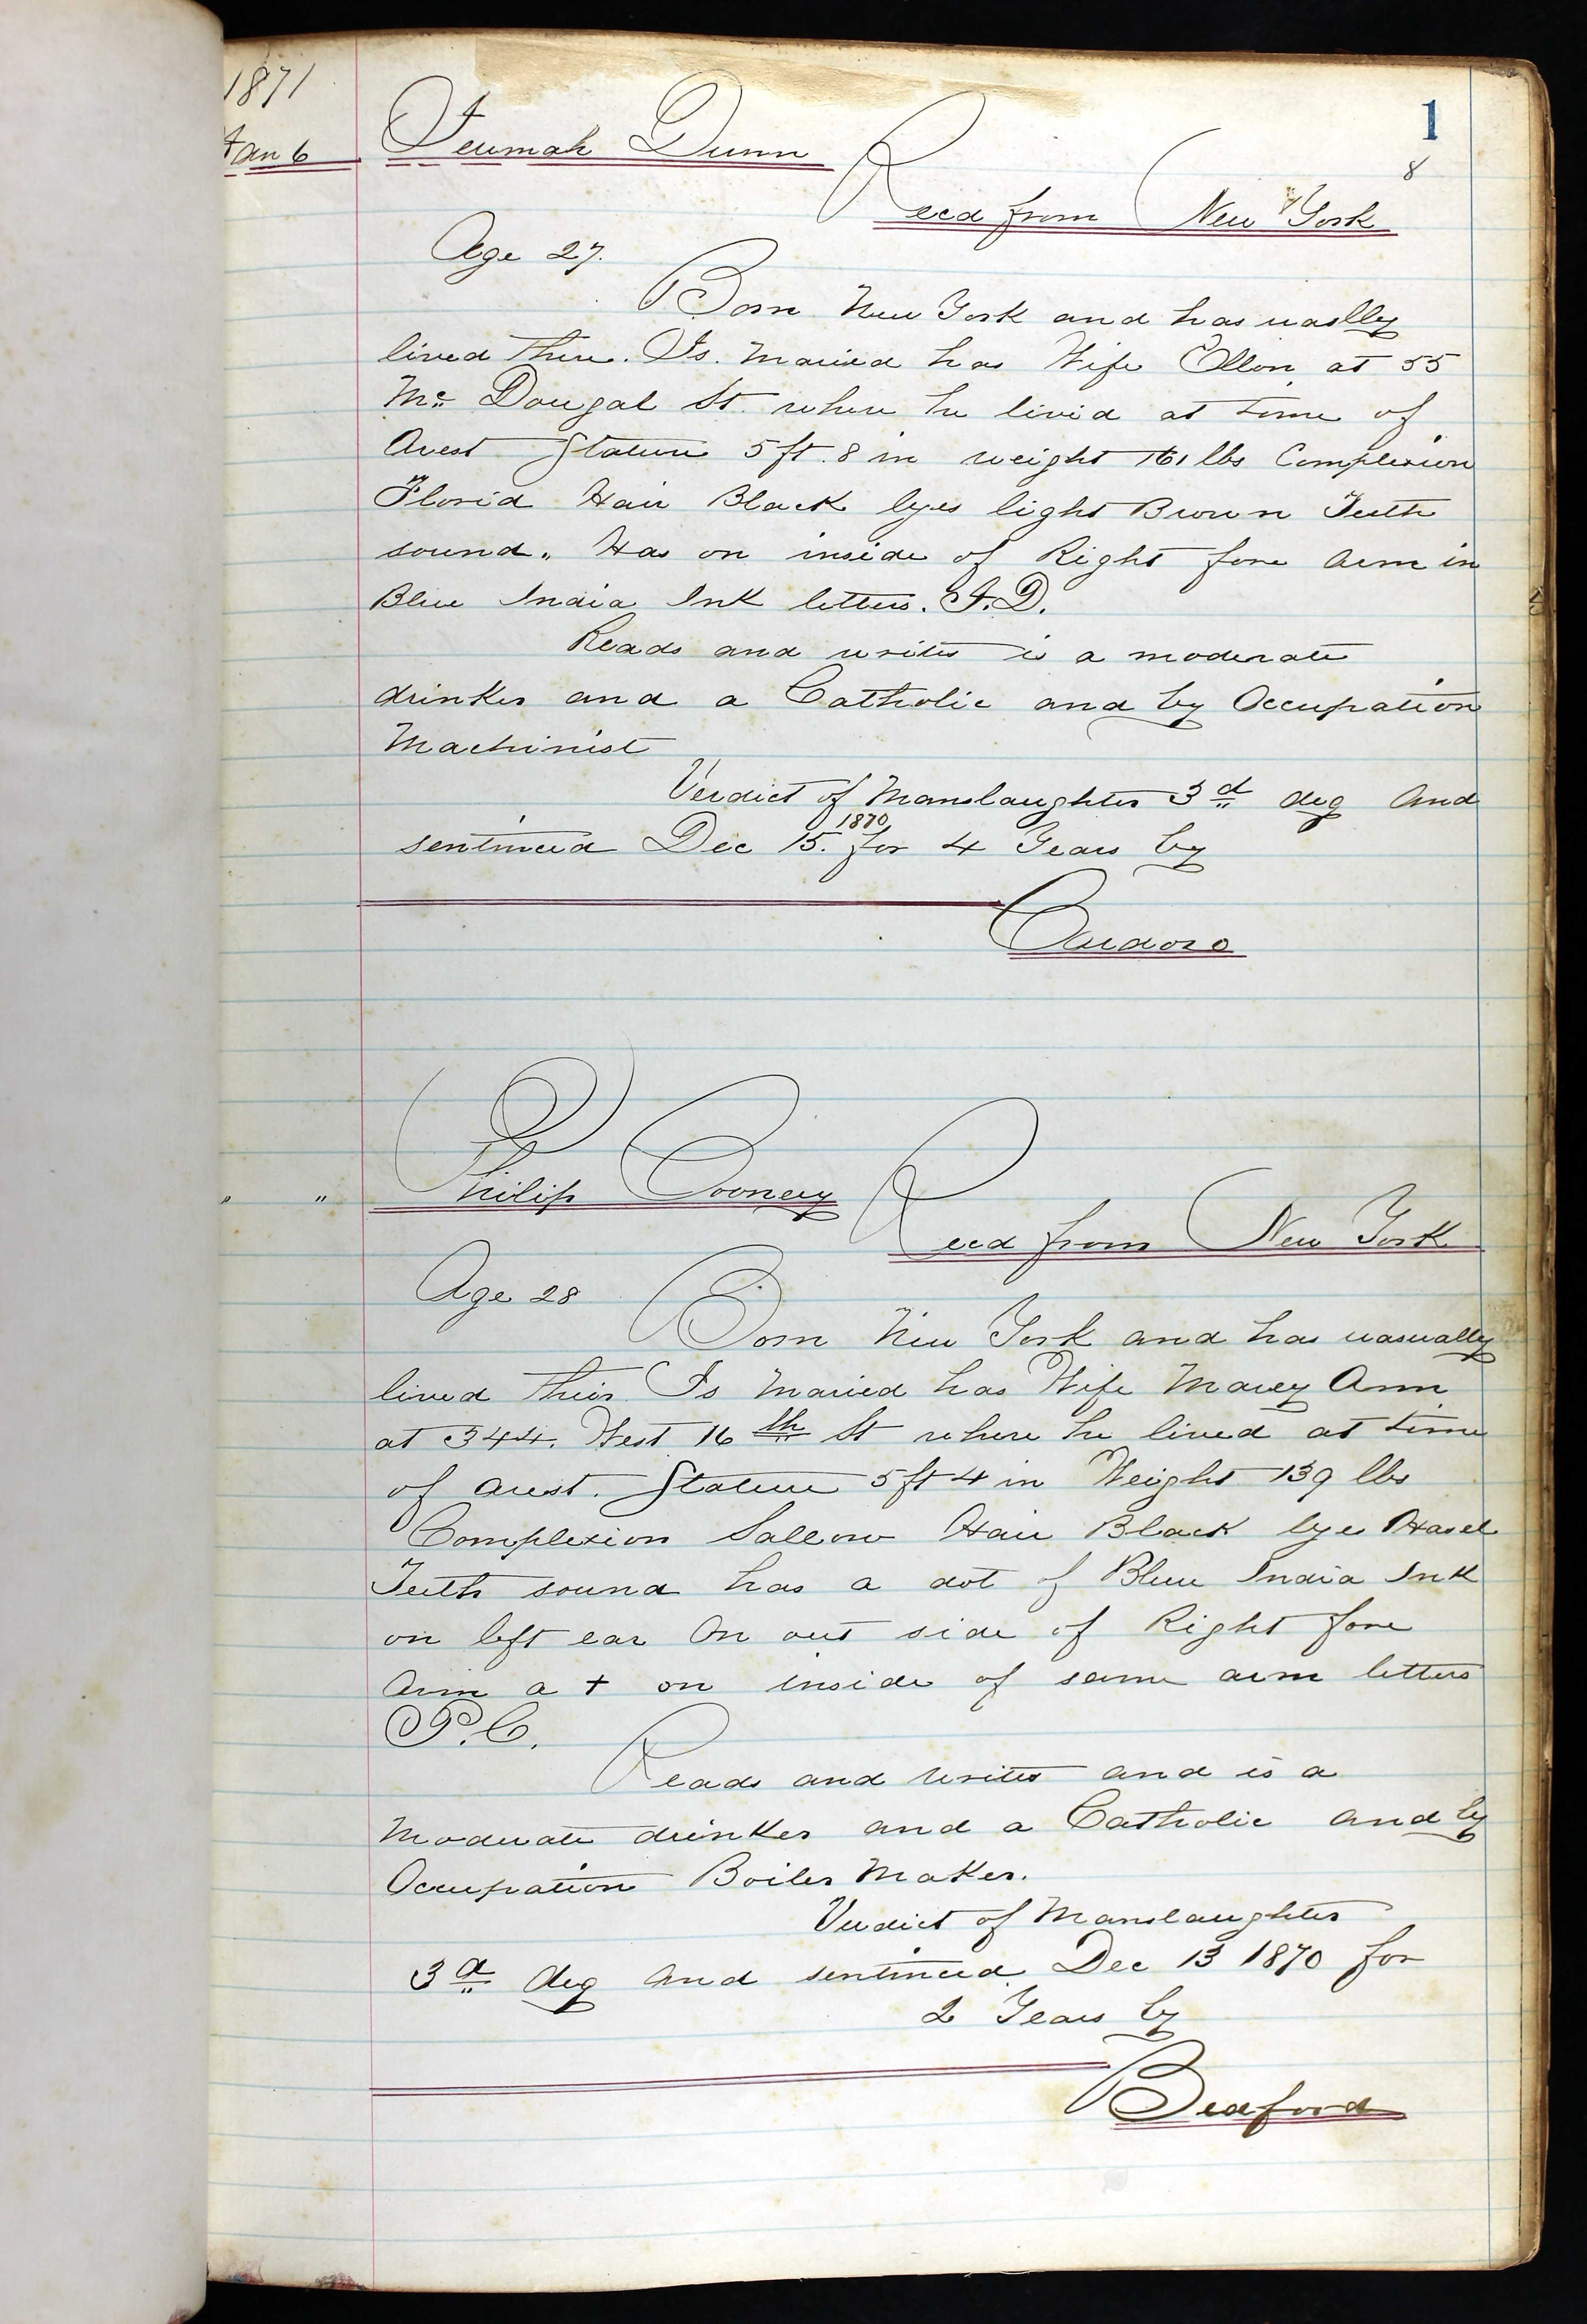 1871
1
Jan 6 Jeumah Dunn
8
Recd from New York
Age 27.
Born New York and has uaslly
lived thire. Is. Maried has Wife Ellon at 55
Mc Dougal St. where he livid at time of
Arest Stature 5 ft. 8 in weight 161 lbs Complexion
Florid Hair Black Eyes light Brown Teeth
sound. Has on inside of Right fore Arm in
Blue India Ink letters. J.D.
Reads and writes is a moderate
drinker and a Catholic and by Occupation
Machinist
Verdict of Manslaughter 3d deg And
1870
sentinced Dec 15. for 4 Years by
Cardozo
" " Philip Cooney
Recd from New York
Age 28
Born New York and has uasually
lived their Is Maried has Wife Marey Ann
at 344. West 16th St where he lived at time
of arest. Stature 5 ft 4 in Weight 139 lbs
Complexion Sallow Hair Black Eye Hasel
Teeth sound has a dot of Blue India Ink
on left ear On out side of Right fore
Arm a + on inside of same arm letters
P.C.
Reads and writes and is a
Moderate drinker and a Catholic and by
Occupation Boiler Maker.
Verdict of Manslaughter
3d deg and sentinced Dec 13 1870 for
2 Years by
Bedford